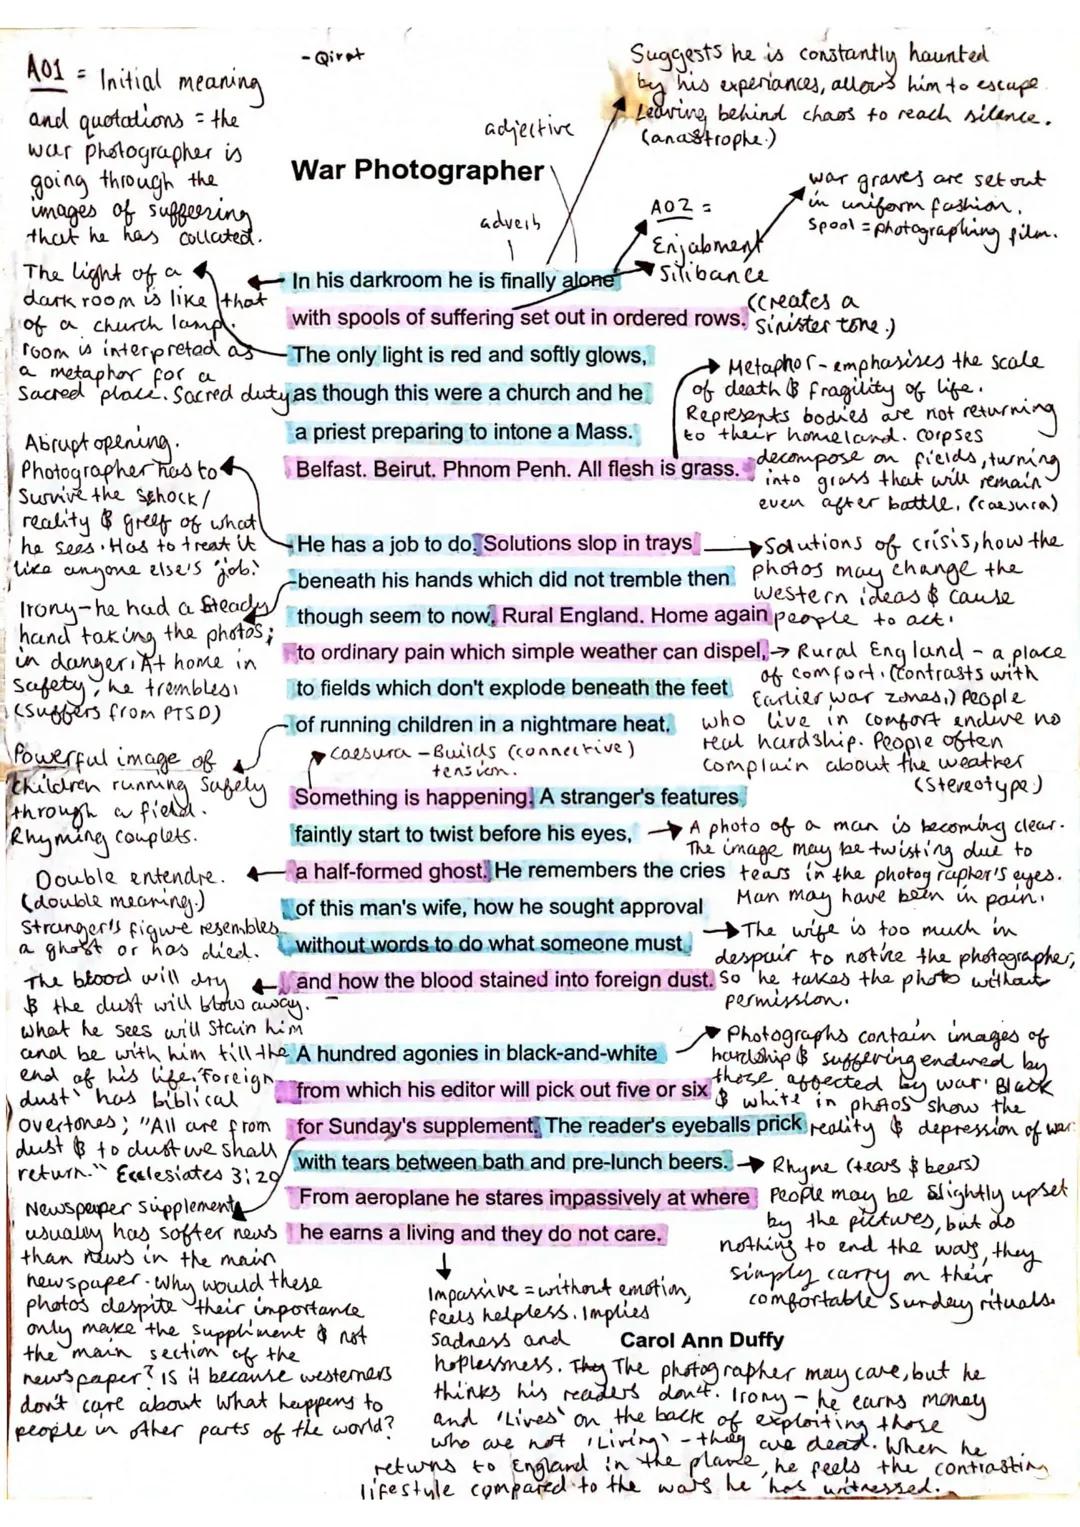 - Qirat
A01 = Initial meaning
and quotations = the
war photographer is
going through the
images of suffeering
that he has collated.
Suggests he is constantly haunted
by his experiances, allows him to escape.
Leaving behind chaos to reach silence.
(anastrophe.)
adjective
War Photographer
adverb
A02 =
Enjabment
Silibance
(creates a
Sinister tone.)
war graves are set out
in uniform fashion.
Spool = photographing film.
In his darkroom he is finally alone
with spools of suffering set out in ordered rows.
The only light is red and softly glows,
as though this were a church and he
a priest preparing to intone a Mass.
Belfast. Beirut. Phnom Penh. All flesh is grass.
The light of a
dark room is like that
of a church lamp.
room is interpreted as
a metaphor for a
Sacred place. Sacred duty
Metaphor - emphasises the scale
of death & fragility of life.
Represents bodies are not returning
to their homeland. corpses
decompose on fields, turning
into grass that will remain
even after battle. (caesura)
Abrupt opening.
Photographer has to
Survive the schock/
reality & greef of what
he sees. Has to treat it
like anyone else's 'job.'
He has a job to do. Solutions slop in trays
beneath his hands which did not tremble then
though seem to now. Rural England. Home again
to ordinary pain which simple weather can dispel,
to fields which don't explode beneath the feet
of running children in a nightmare heat.
Solutions of crisis, how the
photos may change the
western ideas & cause
people to act.
Irony - he had a steady
hand taking the photos;
in danger. At home in
safety, he trembles.
(suffers from PTSD)
Rural England - a place
of comfort. (contrasts with
Earlier war zones.) People
who live in comfort endure no
real hardship. People often
complain about the weather
(stereotype.)
Powerful image of
children running safely
through a field.
Rhyming couplets.
caesura - Builds (connective)
tension.
Something is happening. A stranger's features
faintly start to twist before his eyes,
a half-formed ghost. He remembers the cries
of this man's wife, how he sought approval
without words to do what someone must
and how the blood stained into foreign dust.
A photo of a man is becoming clear.
The image may be twisting due to
tears in the photographer's eyes.
Man may have been in pain.
Double entendre.
(double meaning.)
Stranger's figure resembles
a ghost or has died.
The wife is too much in
despair to notice the photographer,
so he takes the photo without
permission.
The blood will dry
& the dust will blow away.
what he sees will stain him
and be with him till the
end of his life. 'Foreign
dust' has biblical
overtones; "All are from
dust & to dust we shall
return." Ecclesiates 3:20
A hundred agonies in black-and-white
from which his editor will pick out five or six
for Sunday's supplement. The reader's eyeballs prick
with tears between bath and pre-lunch beers.
From aeroplane he stares impassively at where
he earns a living and they do not care.
Photographs contain images of
hardship & suffering endured by
those affected by war. Black
& white in photos show the
reality & depression of war.
Rhyme (tears & beers)
People may be slightly upset
by the pictures, but do
nothing to end the wars, they
simply carry on their
comfortable Sunday rituals.
Newspaper supplement
usually has softer news
than news in the main
newspaper. Why would these
photos despite their importance
only make the suppliment & not
the main section of the
newspaper? IS it because westerners
don't care about what happens to
people in other parts of the world?
Carol Ann Duffy
Impassive = without emotion,
feels helpless. Implies
sadness and
hoplessness. They The photographer may care, but he
thinks his readers don't. Irony - he earns money
and 'Lives' on the back of exploiting those
who are not 'Living' - they are dead. When he
returns to England in the plane, he feels the contrasting
lifestyle compared to the wars he has witnessed.